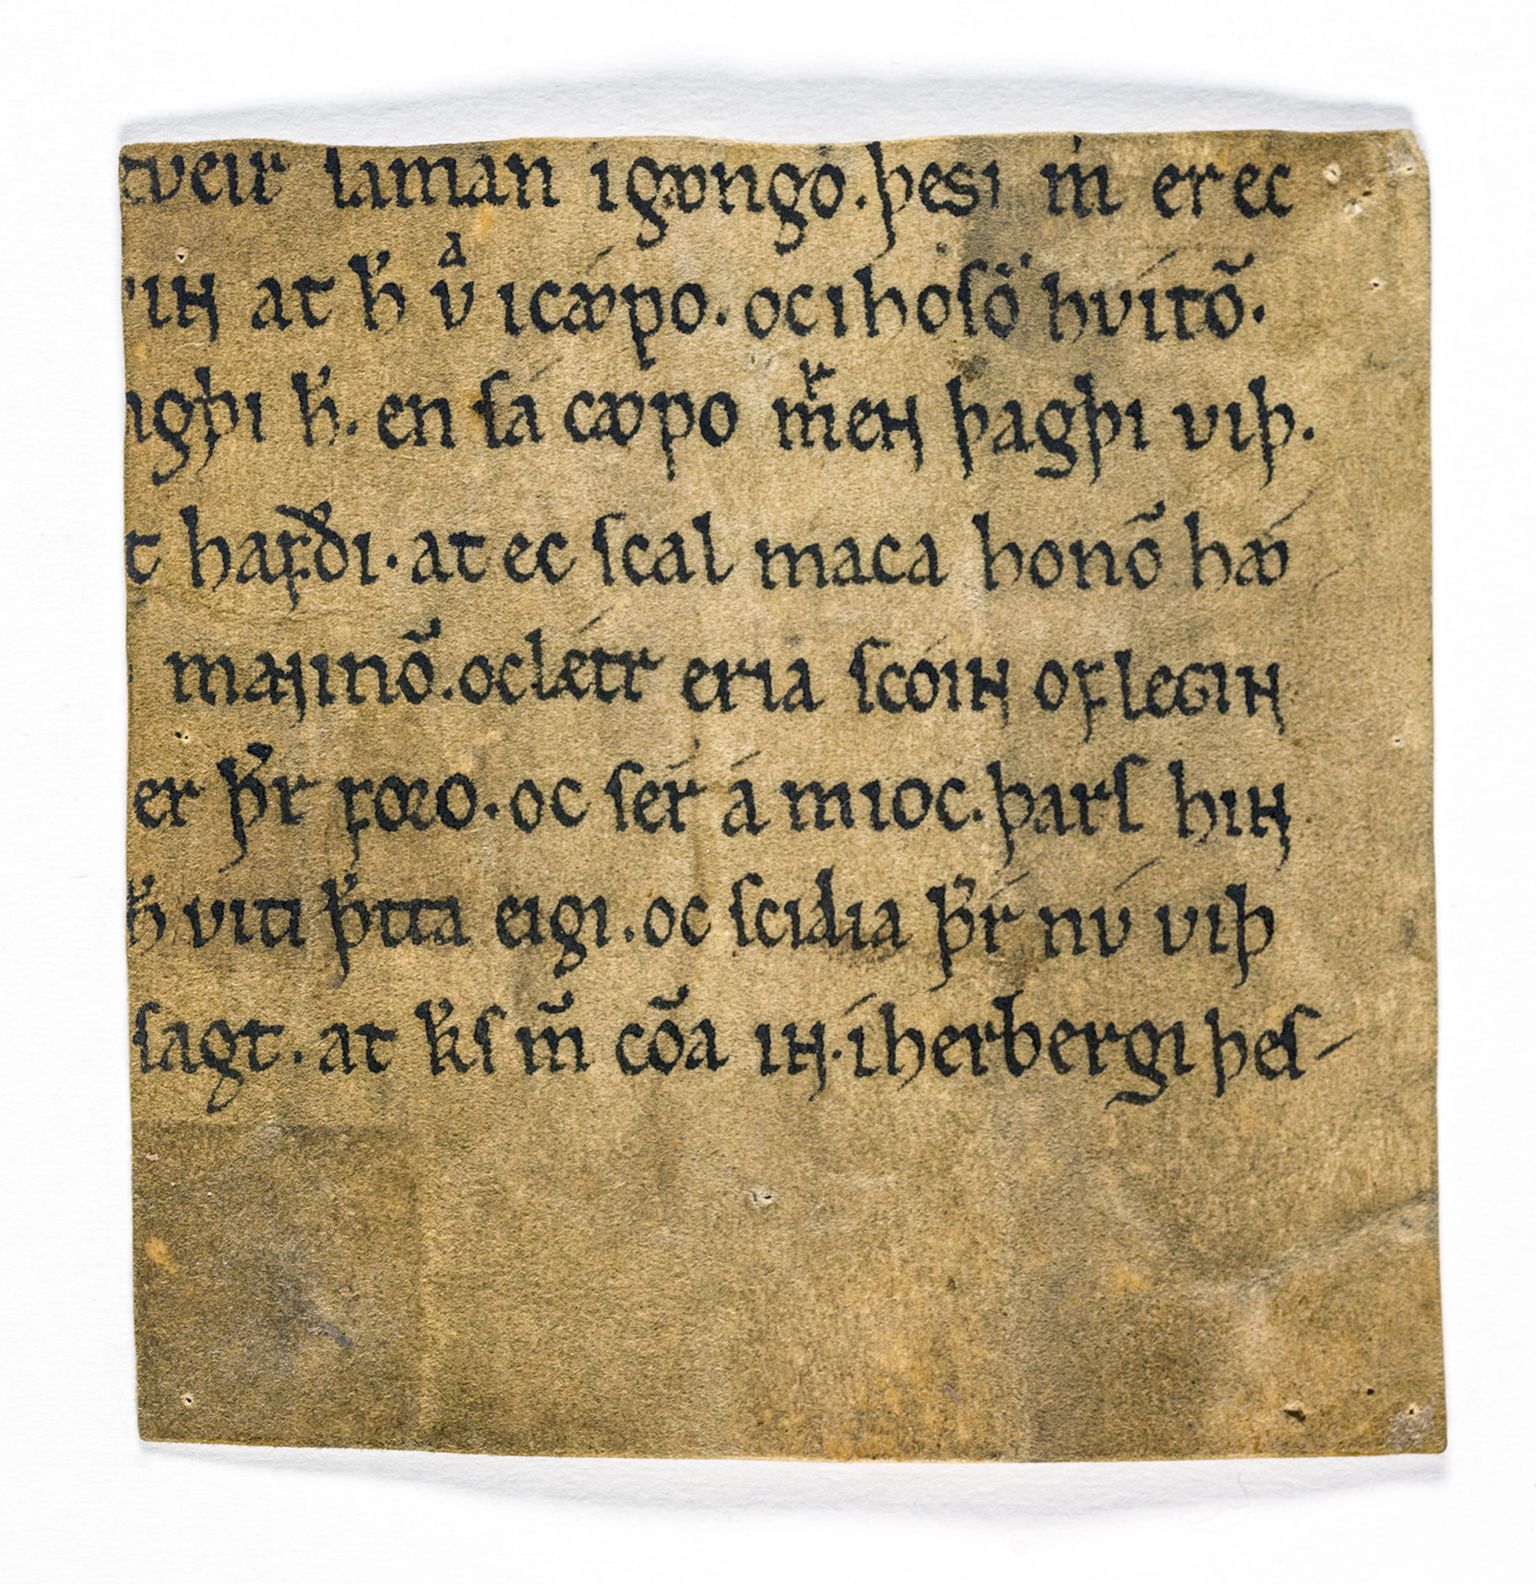 tveir saman igꜹngo. þesi m̄ er ec
in at h̅ vͣ icꜹ́po. oc i hosō hvítō.
gþi h̅. en sa cꜹpo mͬen þagþi viþ.
t hafði. at ec scal maca honō hꜹ́
maɴinō. oc lę́tr eria scóiɴ of legiɴ
er þ̅r foꝛo. oc sér á mioc. þars hiɴ
h̅ viti þ̅tta eigi. oc scidia þ̅r nú viþ
sagt. at k̅s m̄ cōa iɴ. í herbergi þes-